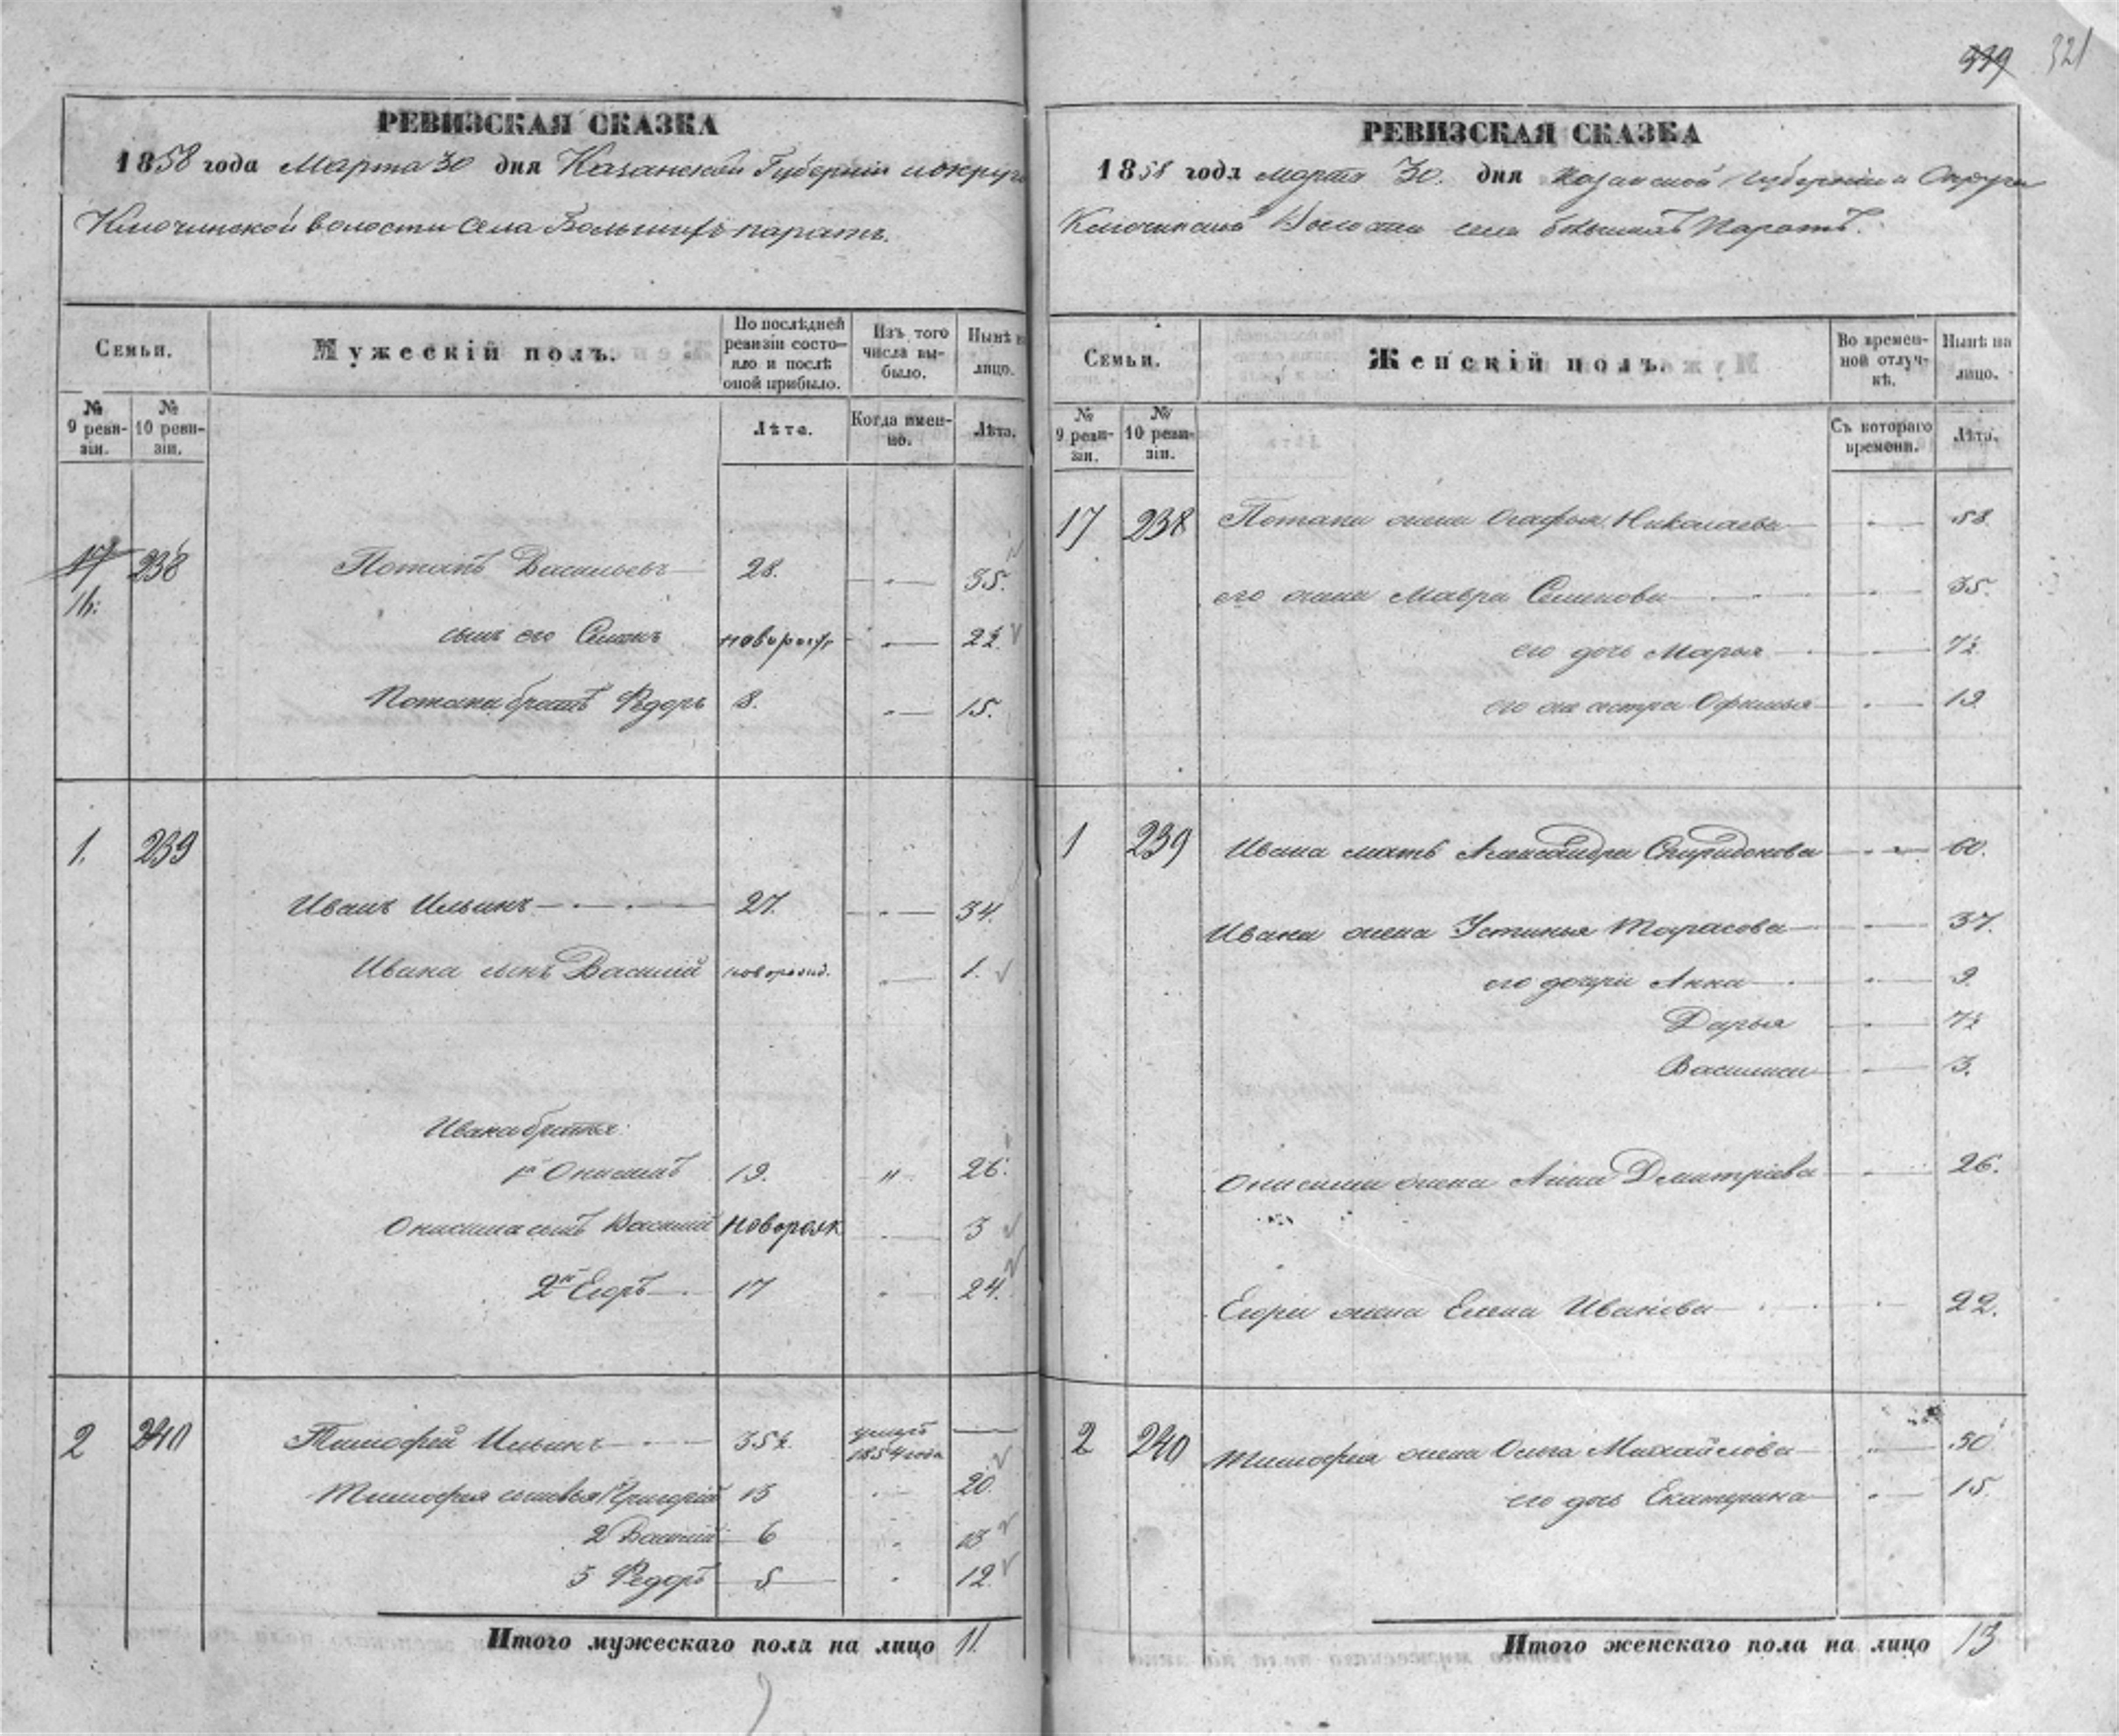 339 321
РЕВИЗСКАЯ СКАЗКА
1858 года Марта 30 дня Казанской Губернии и округа
Ключинской волости села Большихъ паратъ.
Семьи.
Мужескій полъ.
По послѣдней ревизіи состояло и послѣ оной прибыло.
Изъ того числа выбыло.
Нынѣ на лицо.
№ 9 ревизіи.
№ 10 ревизіи.
Лѣта.
Когда именно.
Лѣта.
17 238 Потапъ Васильевъ 28. " 35.
16.
сынъ его Семенъ новорож " 2½
Потапа братъ Ѳедоръ 8. " 15.
1. 239
Иванъ Ильинъ 27. " 34.
Ивана сынъ Василій новорожд. " 1.
Ивана братья:
1й Онисимъ 19. " 26.
Онисима сынъ Василій новорож 3
2й Егоръ 17 " 24.
2 240 Тимофей Ильинъ 35½ умеръ 1854 года —
Тимофея сыновья 1 Григорій 13 " 20.
2 Василій 6 " 13
3 Ѳедоръ 5 " 12
Итого мужескаго пола на лицо 11.
РЕВИЗСКАЯ СКАЗКА
1858 года марта 30. дня Казанской губерніи и Округи
Ключинской Волости села большихъ Паратъ.
Семьи.
Женскій полъ.
Во временной отлучкѣ.
Нынѣ на лицо.
№ 9 ревизіи.
№ 10 ревизіи.
Съ котораго времени.
Лѣта.
17 238 Потапа мать Агафья Николаева " 58.
его жена Мавра Семенова " 35.
его дочь Марья " 7½
его же сестра Офимья " 19.
1 239 Ивана мать Александра Спиридонова " 60.
Ивана жена Устинья Тарасова " 37.
его дочери Анна " 9.
Дарья " 7½
Василиса " 3.
Онисима жена Анна Дмитріева " 26.
Егора жена Елена Иванова " 22.
2 240 Тимофея жена Ольга Михайлова " 50
его дочь Екатерина " 15.
Итого женскаго пола на лицо 13